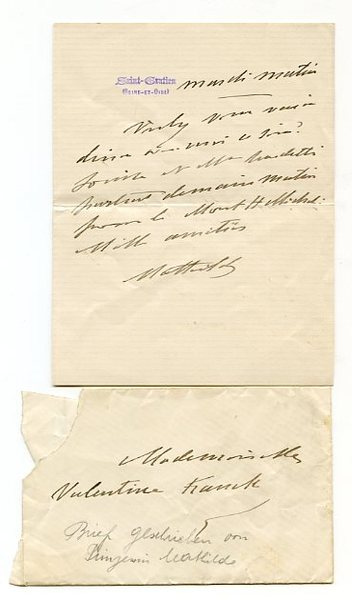 Saint-Gratien
(Seine-et-Oise)
mardi matin
Voulez Vous venir
diner avec moi ce soir?
et Mlle
partent demain matin
pour le Mont St Michel.
Mille amitiés
Mathilde
Mademoiselle
Valentine
Brief geschrieben von
Prinzessin Mathilde